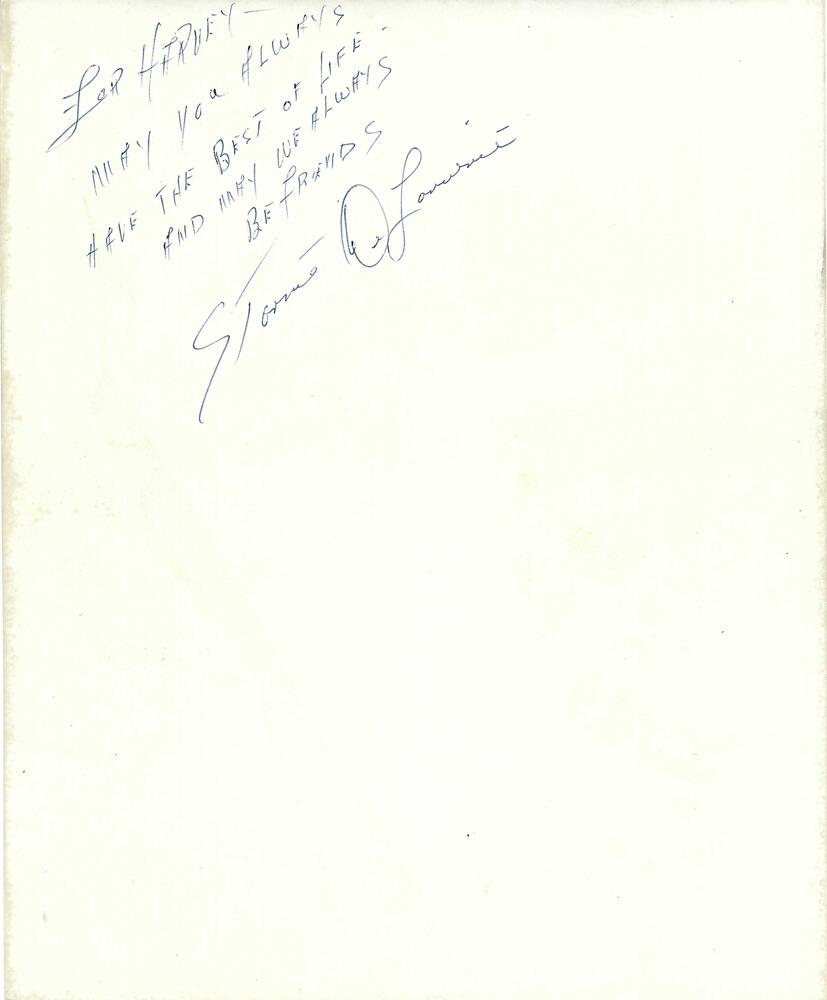 FOR HARVEY —
MAY YOU ALWAYS
HAVE THE BEST OF LIFE -
AND MAY WE ALWAYS
BE FRIENDS
Stormé DeLarverié